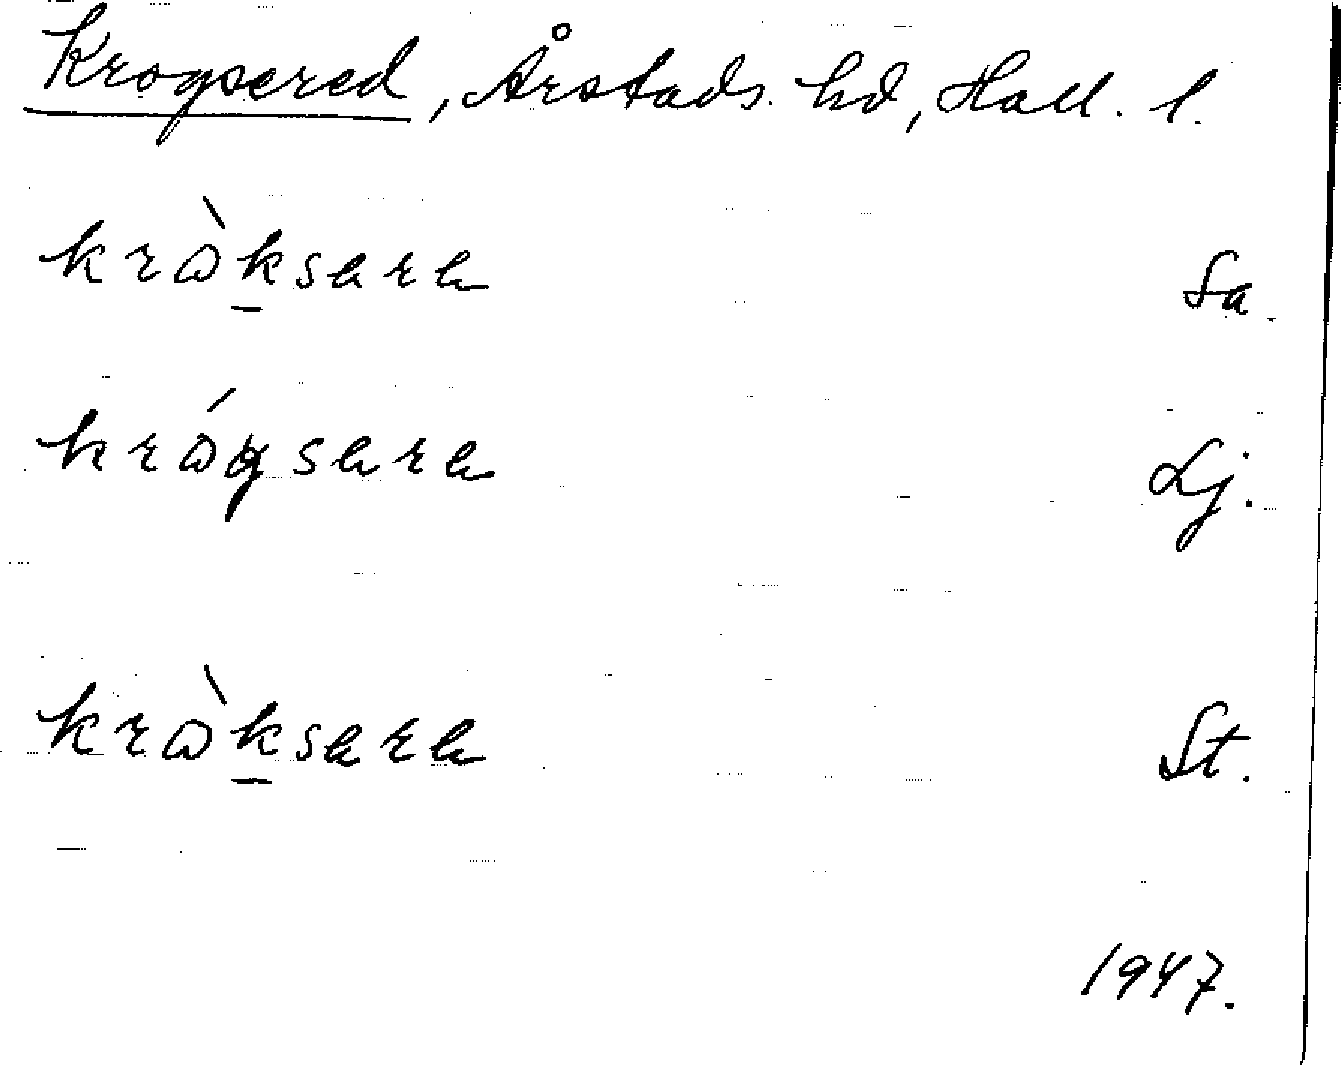 Krogsered, Årstads hd, Hall. l.
krò̀ksara Sa.
krógsara Lj.
krò̀ksara St.
1947.